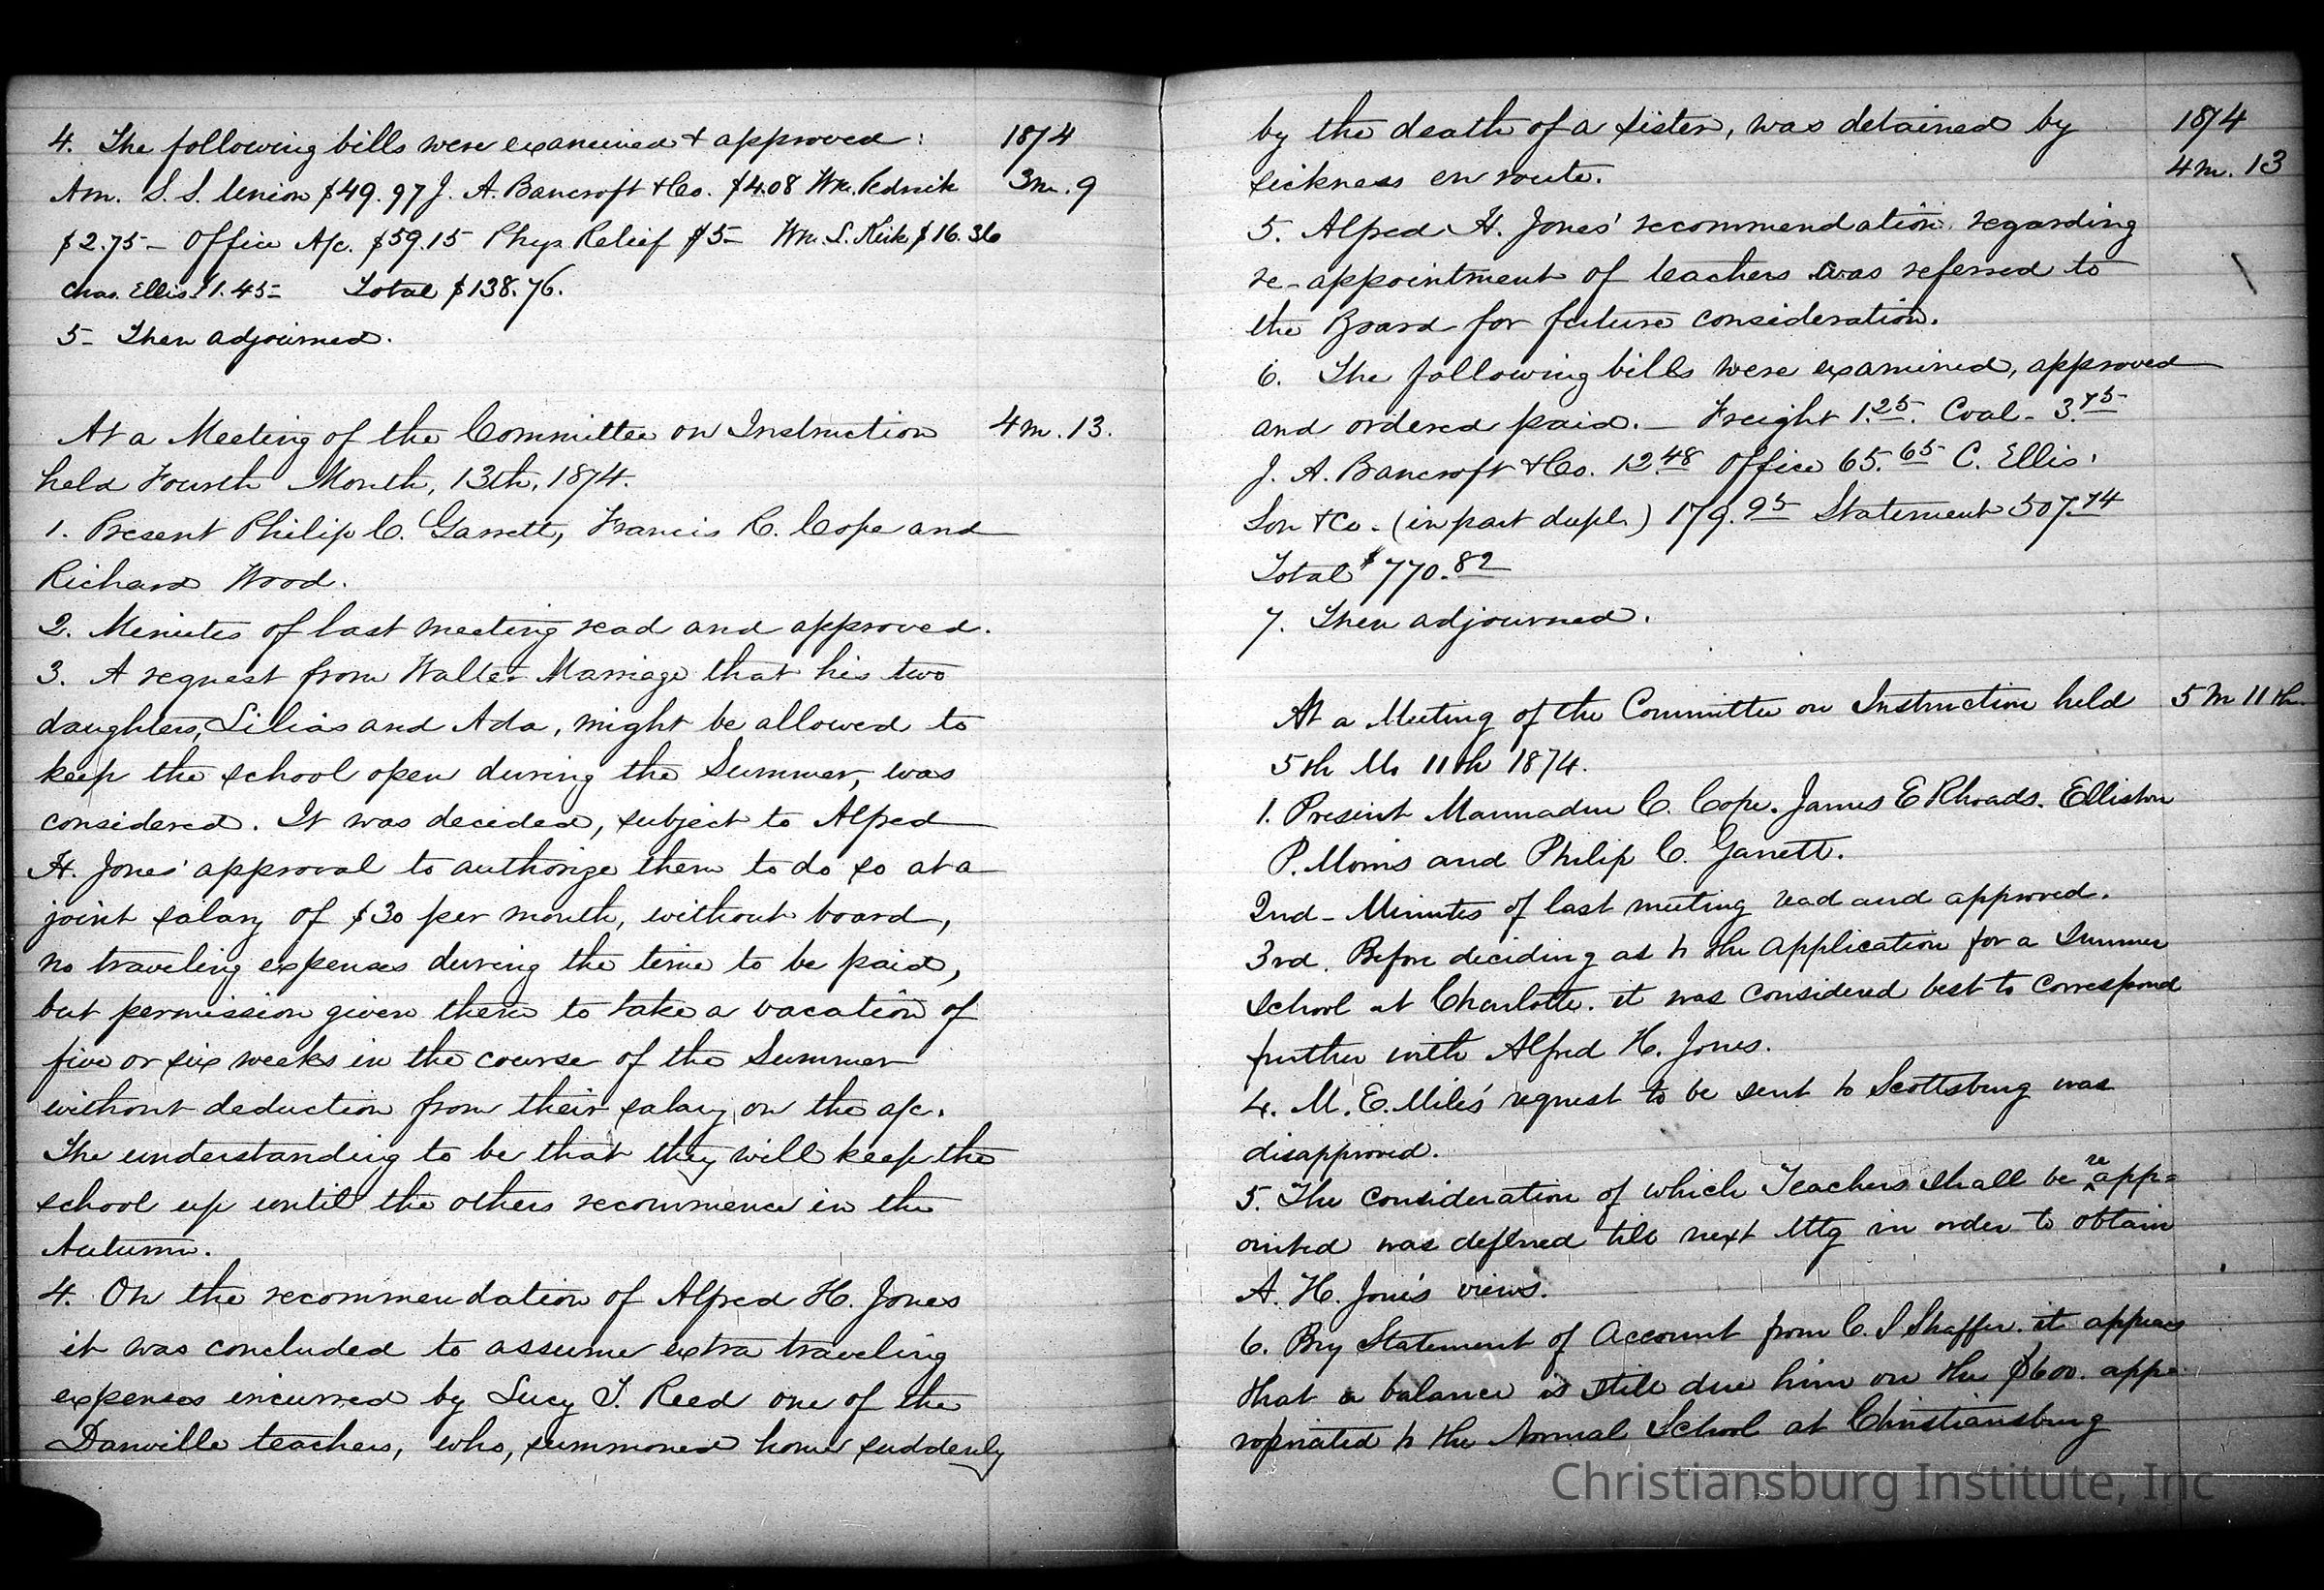 4. The following bills were examined & approved: 1874
Am. S. S. Union $49.97 J. A. Bancroft & Co. $4.08 Wm. 3m. 9
$2.75 - Office A/c. $59.15 Phys. Relief $5- Wm. S. $16.36
Chas. Ellis $1.45- Total $138.76.
5- Then adjourned.
At a Meeting of the Committee on Instruction 4m. 13.
held Fourth Month, 13th, 1874.
1. Present Philip C. Garrett, Francis R. Cope and
Richard Wood.
2. Minutes of last meeting read and approved.
3. A request from Walter Marriage that his two
daughters, Lilias and Ada, might be allowed to
keep the school open during the Summer, was
considered. It was decided, subject to Alfred
H. Jones' approval to authorize them to do so at a
joint salary of $30 per month, without board,
no traveling expenses during the time to be paid,
but permission given them to take a vacation of
five or six weeks in the course of the Summer
without deduction from their salary on the a/c.
The understanding to be that they will keep the
school up until the others recommence in the
Autumn.
4. On the recommendation of Alfred H. Jones
it was concluded to assume extra traveling
expenses incurred by Lucy T. Reed one of the
Danville teachers, who, summoned home suddenly
by the death of a sister, was detained by 1874
sickness en route. 4m. 13
5. Alfred H. Jones' recommendation regarding
re-appointment of teachers was referred to
the Board for future consideration.
6. The following bills were examined, approved
and ordered paid. - Freight 1.25. Coal - 3.75
J. A. Bancroft & Co. 12.48 Office 65.65 C. Ellis,
Son & Co. (in part dupl.) 179.95 Statement 507.74
Total $770.82
7. Then adjourned.
At a Meeting of the Committee on Instruction held 5 M 11th.
5th Mo 11th 1874.
1. Present Marmaduke C. Cope. James E Rhoads. Elliston
P. Morris and Philip C. Garrett.
2nd - Minutes of last meeting read and approved.
3rd. Before deciding as to the application for a Summer
School at Charlotte. it was considered best to correspond
further with Alfred H. Jones.
4. M. E. Miles' request to be sent to Scottsburg was
disapproved.
5. The consideration of which Teachers shall be re app=
ointed was deferred till next Mtg in order to obtain
A. H. Jones views.
6. By Statement of Account from C. S Shaffer. it appears
that a balance is still due him on the $600. app=
ropriated to the Normal School at Christiansburg
Christiansburg Institute, Inc